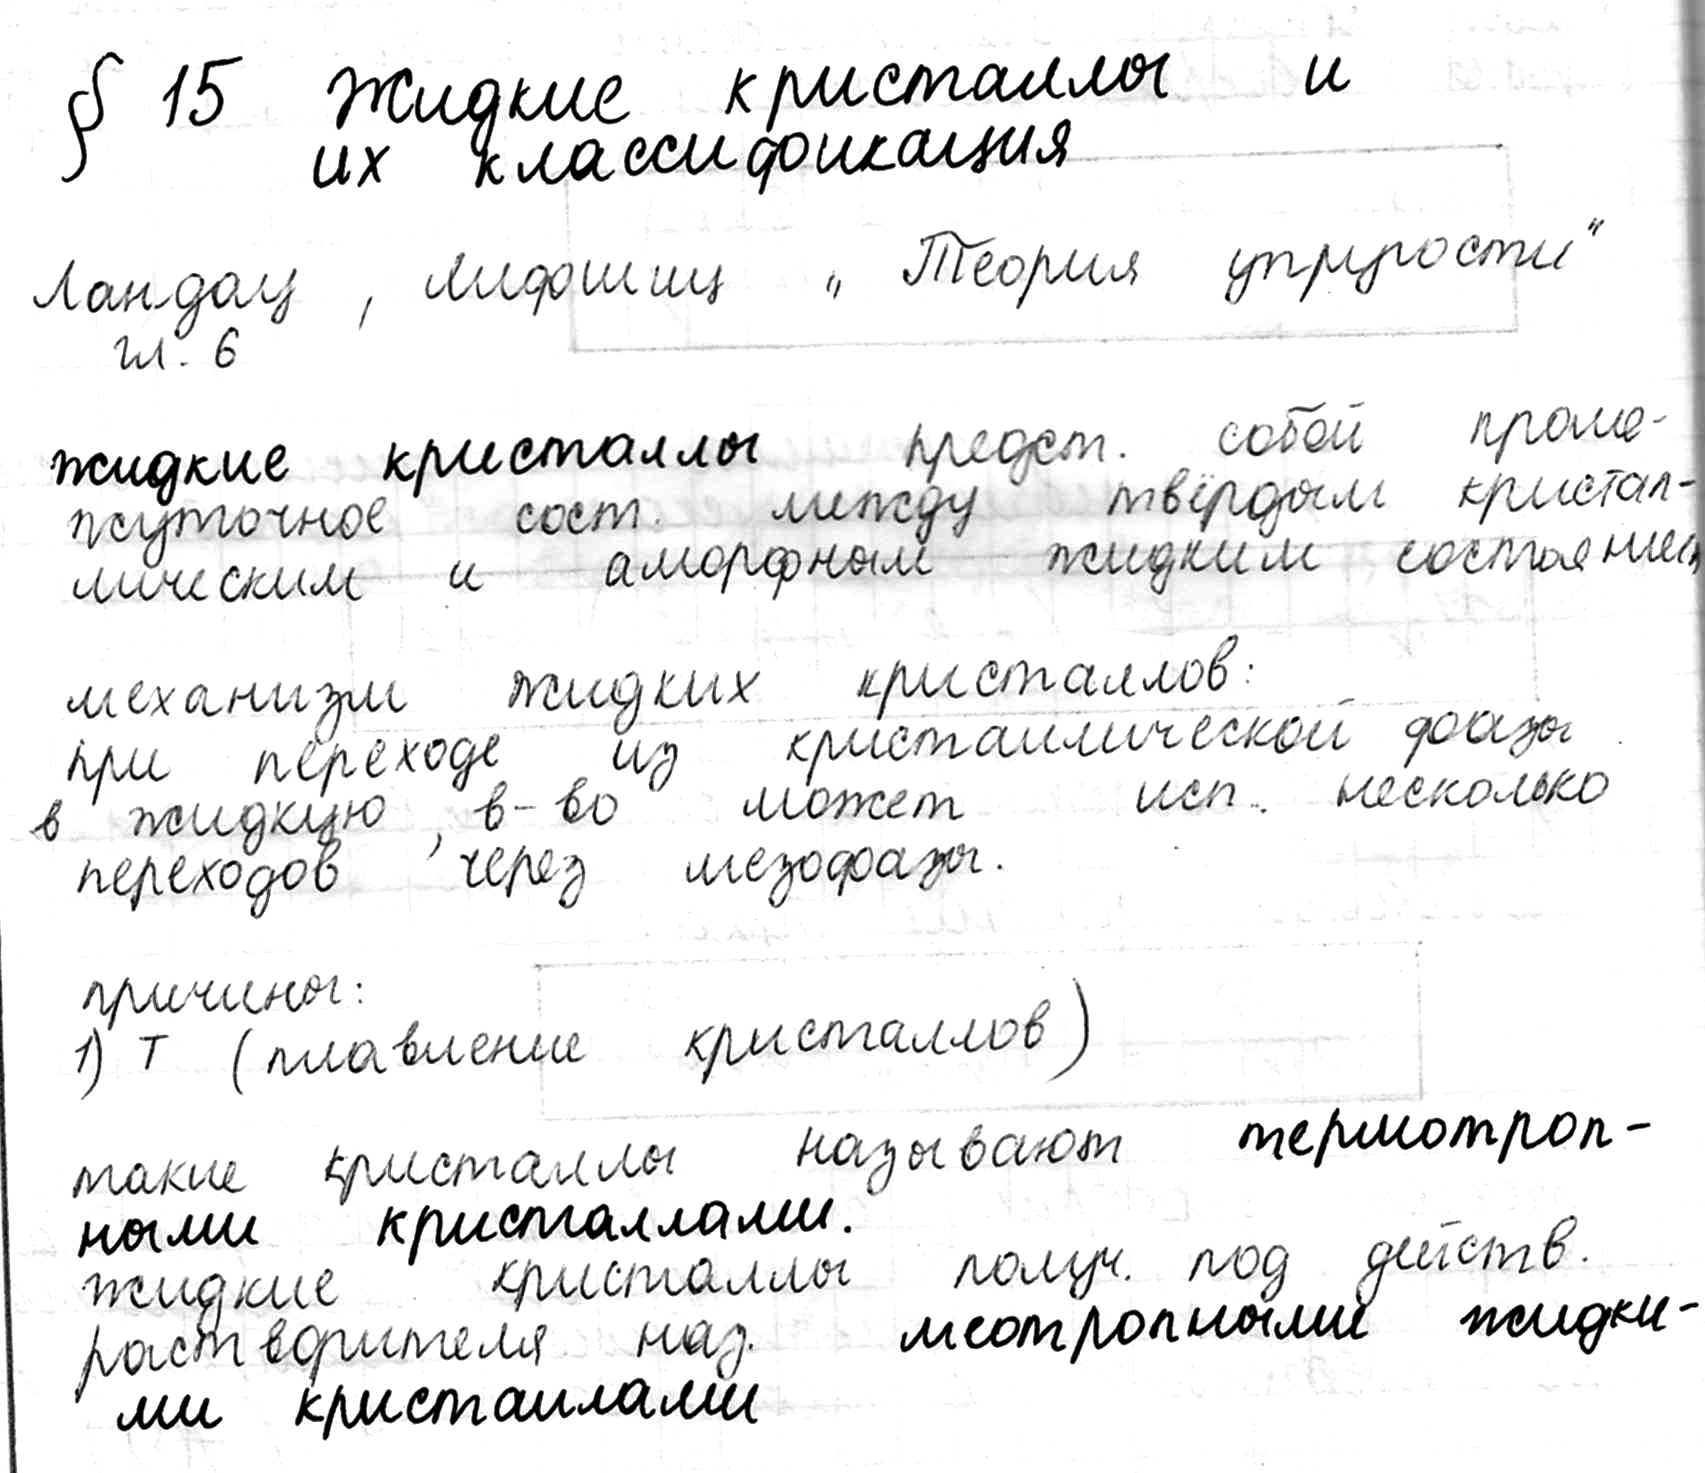 § 15 Жидкие кристаллы и
их классификация
Ландау, Лифшиц „Теория упругости“
гл. 6
жидкие кристаллы предст. собой проме-
жуточное сост. между твёрдым кристал-
лическим и аморфным жидким состоянием
механизм жидких кристаллов:
при переходе из кристаллической фазы
в жидкую, в-во может исп. несколько
переходов, через мезофазы.
причины:
1) T (плавление кристаллов)
такие кристаллы называют термотроп-
ными кристаллами.
жидкие кристаллы получ. под действ.
растворителя наз. лиотропными жидки-
ми кристаллами